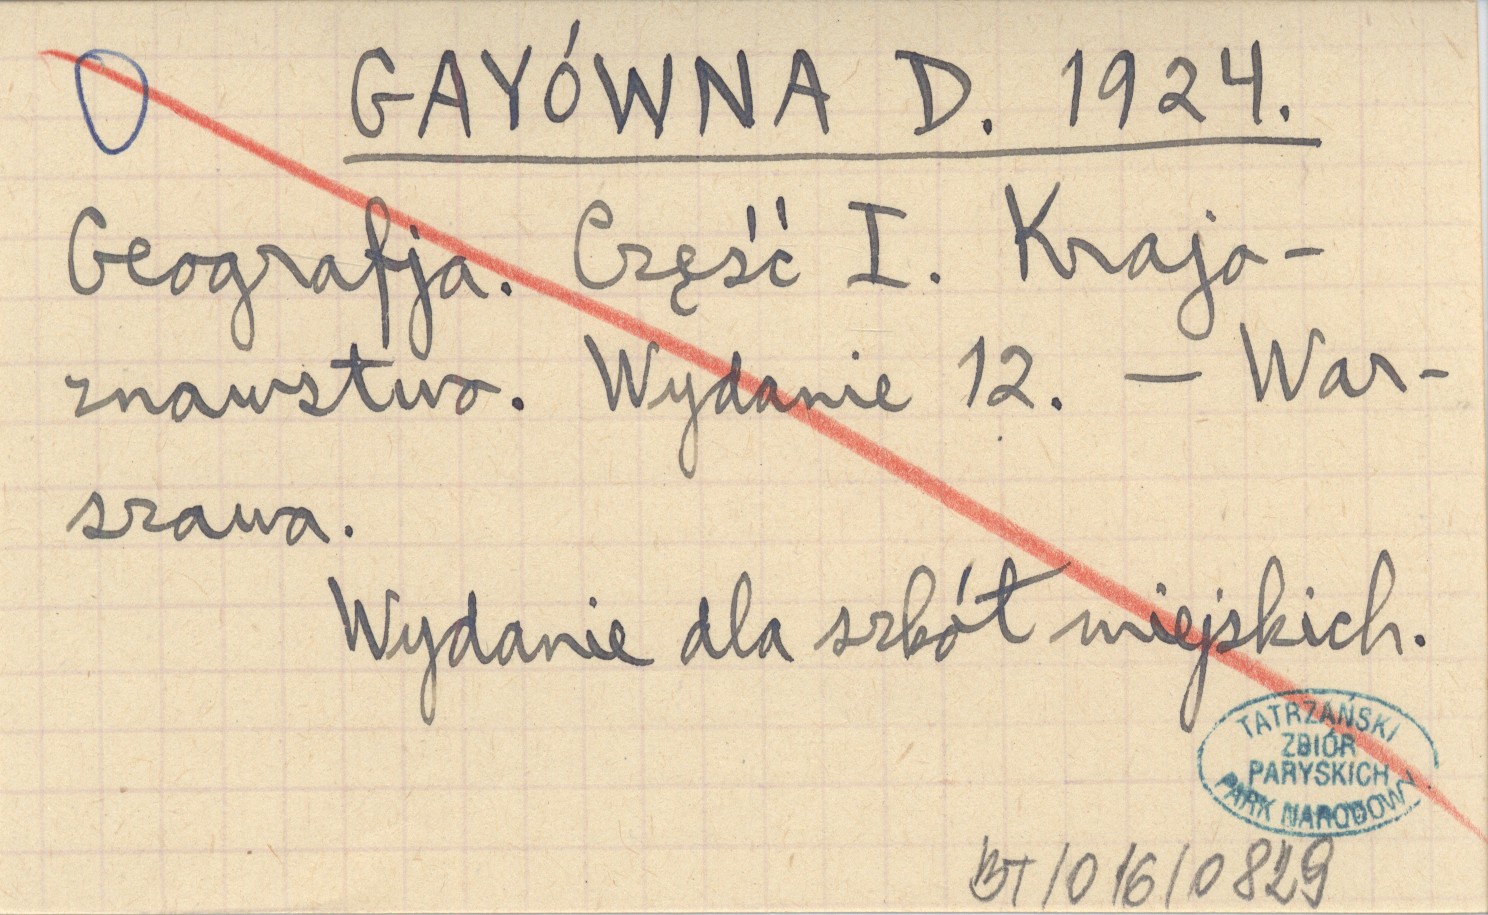 GAYÓWNA D. 1924.
Geografja. Część I. Krajo-
znawstwo. Wydanie 12. — War-
szawa.
Wydanie dla szkół miejskich.
TATRZAŃSKI
ZBIÓR
PARYSKICH
PARK NARODOWY
BT/016/0829